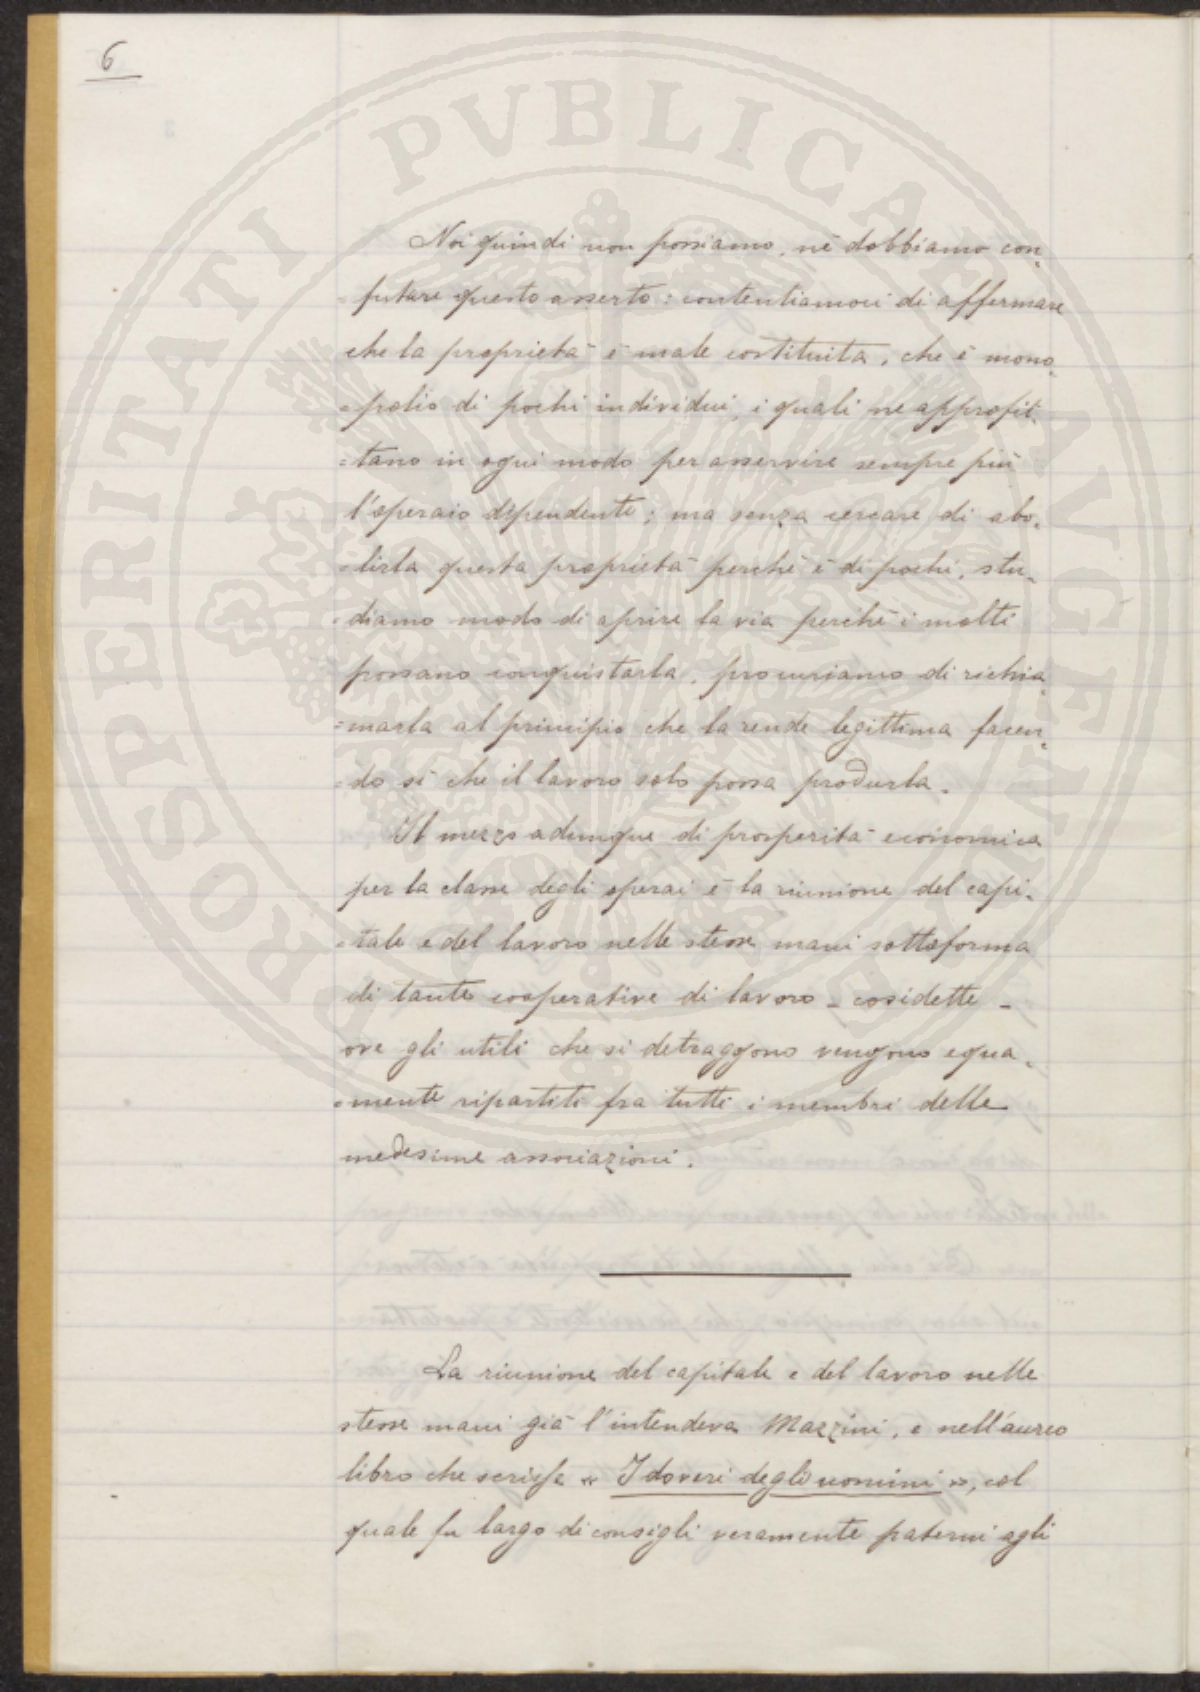 6
PROSPERITATI PVBLICAE AVGENDAE
Noi quindi non possiamo, nè dobbiamo con,
futare questo asserto: contentiamoci di affermare
che la proprietà è male costituita, che è mono,
=polio di pochi individui, i quali ne approfit,
=tano in ogni modo per asservire sempre più
l'operaio dipendente; ma senza cercare di abo,
=lirla questa proprietà perchè è di pochi, stu,
=diamo modo di aprire la via perchè i molti
possano conquistarla, procuriamo di richia,
=marla al principio che la rende legittima facen,
=do sì che il lavoro solo possa produrla.
Il mezzo adunque di prosperità economica
per la classe degli operai è la riunione del capi,
=tale e del lavoro nelle stesse mani sottoforma
di tante cooperative di lavoro - cosidette -
ove gli utili che si detraggono vengono equa,
=mente ripartiti fra tutti i membri delle
medesime associazioni.
La riunione del capitale e del lavoro nelle
stesse mani già l'intendeva Mazzini, e nell'aureo
libro che scrisse « I doveri degli uomini », col
quale fu largo di consigli veramente paterni agli